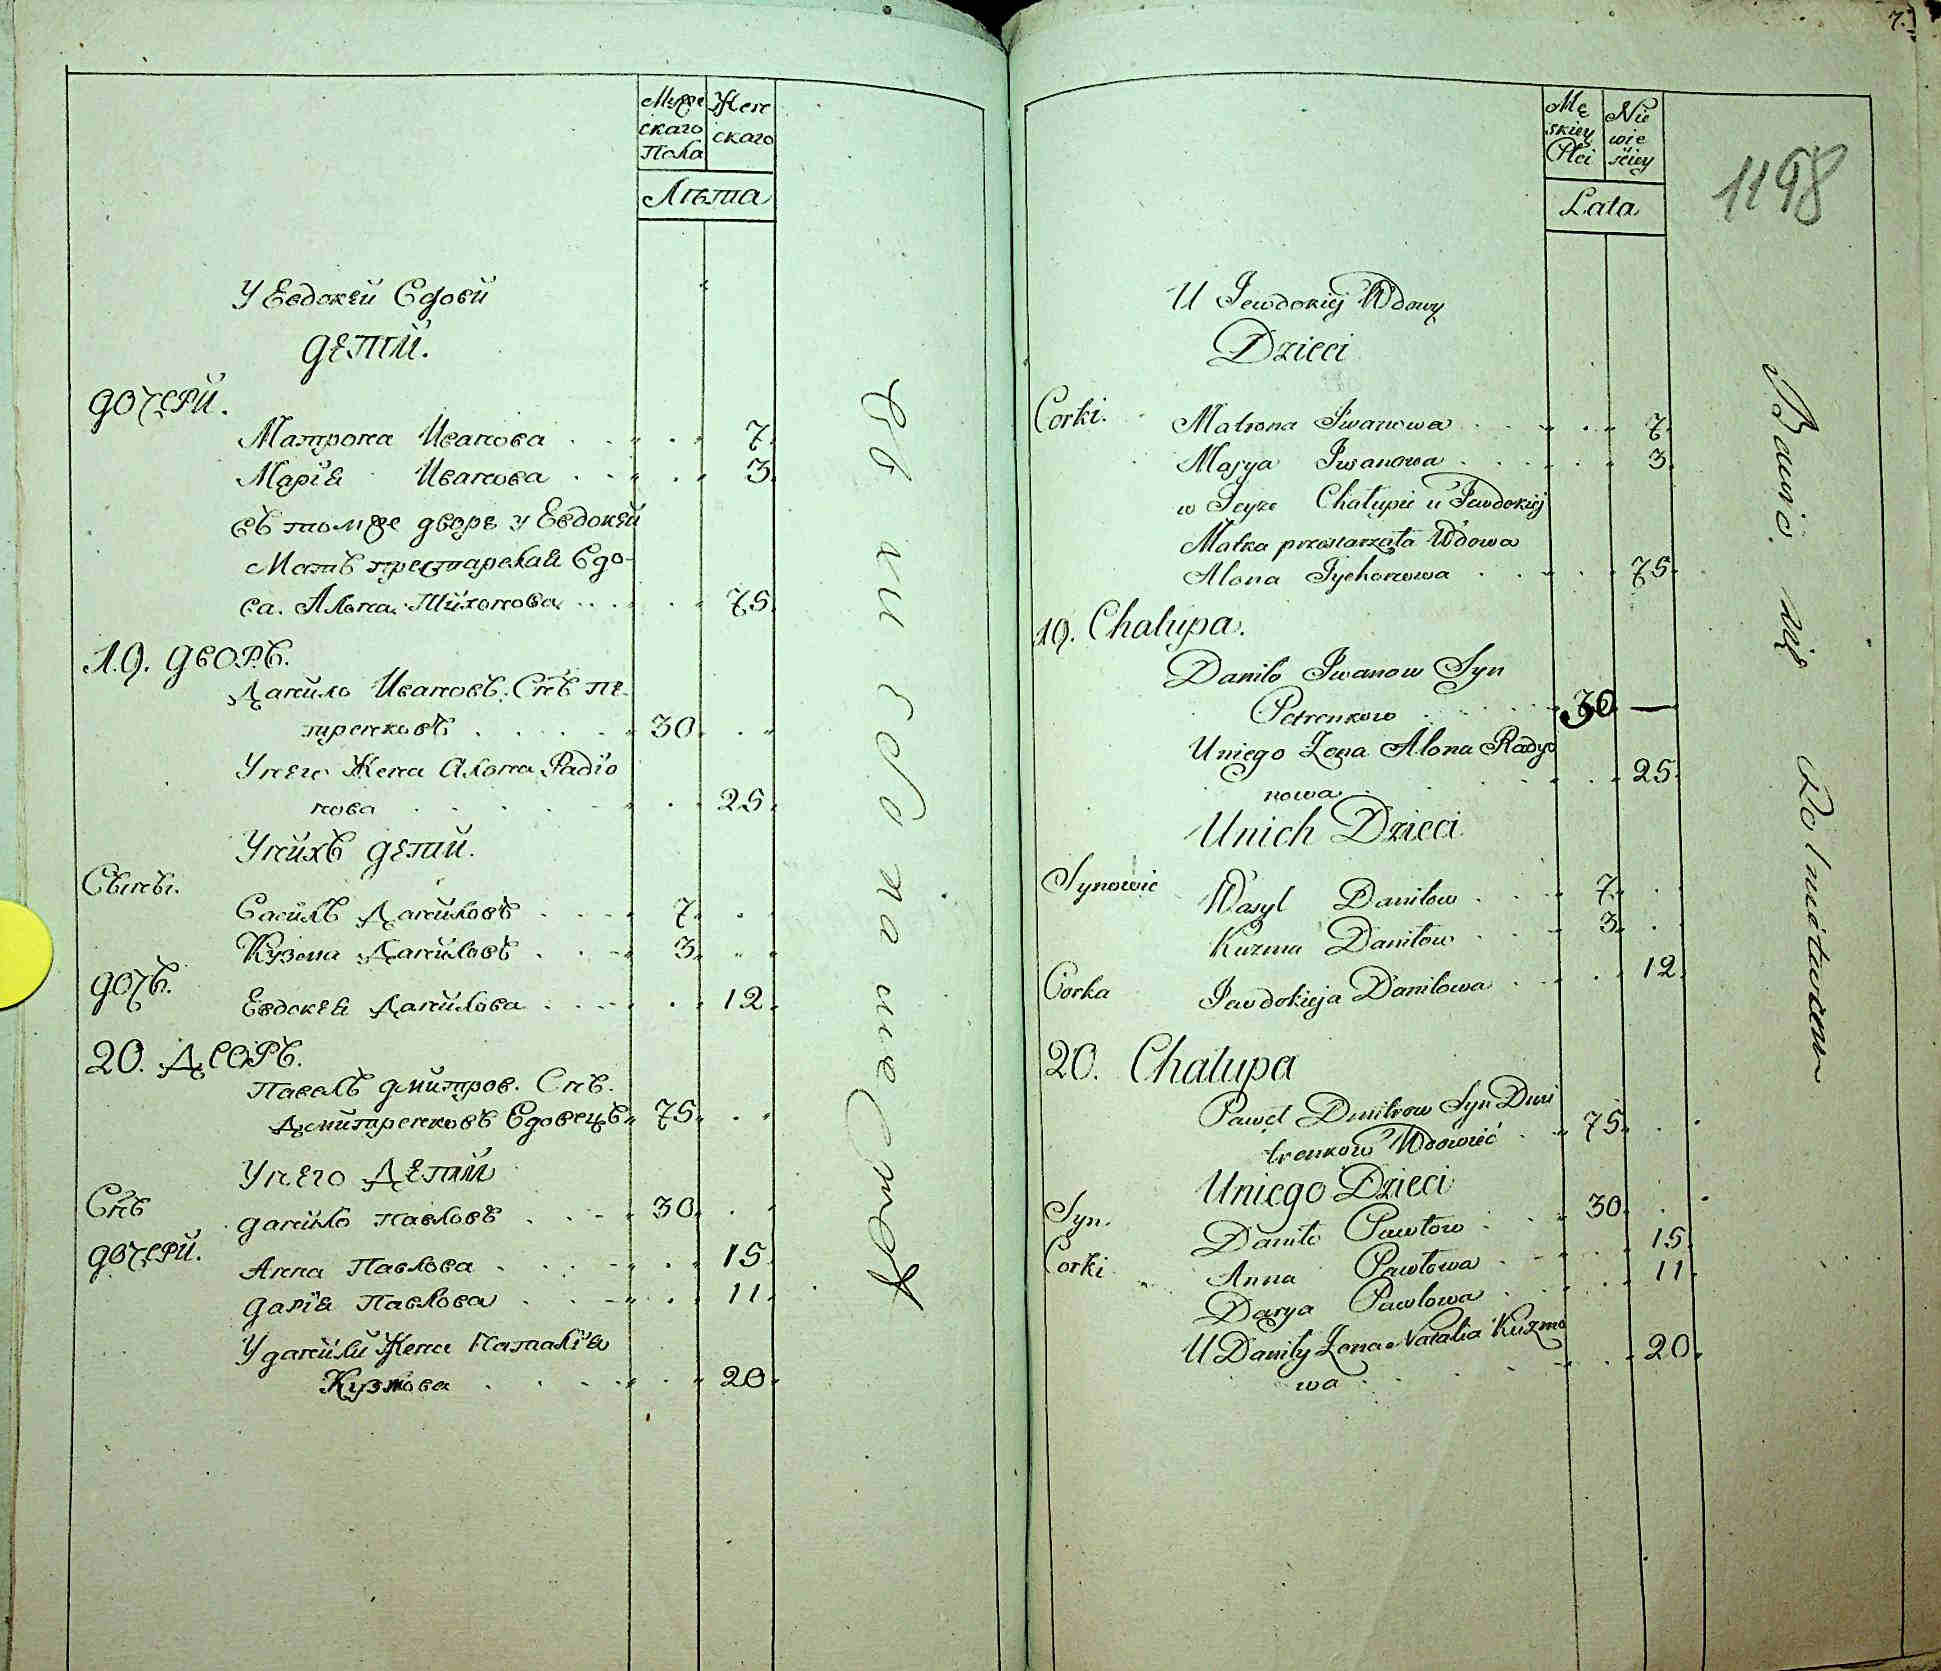 Мужескаго Пола
Женскаго
Лѣта
У Евдокѣй Вдовй
детйй.
дочерй.
Матрона Иванова 7.
Марїя Иванова 3.
Въ томже дворе у Евдокѣй
Мать престарелая Вдо-
ва. Алена Тйхонова 75.
19. дворъ.
Данйло Ивановъ. Снъ пе-
тренковъ 30
У него Жена Алона Радїо
нова 25.
У нйхъ детйй.
Сынъı.
Васйлъ Данйловъ 7.
Кузма Данйловъ 3.
дочь.
Евдокея Данйлова 12.
20. Дворъ.
Павелъ дмйтров. Снъ.
Дмйтренковъ Вдовецъ 75.
У него Детйй
Снъ
данйло павловъ 30.
дочерй.
Анна Павлова 15
дарїя Павлова 11.
У данйлй Жена Наталїя
Кузмова 20.
7.
1198
Mę
skiey
Płci
Nie
wie
sciey
Lata
U Jewdokiey Wdowy
Dzieci
Corki.
Matrona Iwanowa 7.
Marya Iwanowa 3.
w Teyże Chałupie u Jewdokiej
Matka przestarzała Wdowa
Alona Tychonowa 75.
19. Chałupa.
Daniło Iwanow Syn
Petrenkow 30 —
Uniego Żona Alona Radyo
nowa 25.
Unich Dzieci
Synowie
Wasyl Daniłow 7.
Kuzma Daniłow 3.
Corka
Jawdokieja Danilowa 12.
20. Chałupa
Paweł Dmitrow Syn Dmi
trenkow Wdowieć 75.
Uniego Dzieci
Syn.
Daniło Pawłow 30.
Corki
Anna Pawłowa 15.
Darya Pawłowa 11.
U Daniły Żona Natalia Kuzmo
wa 20.